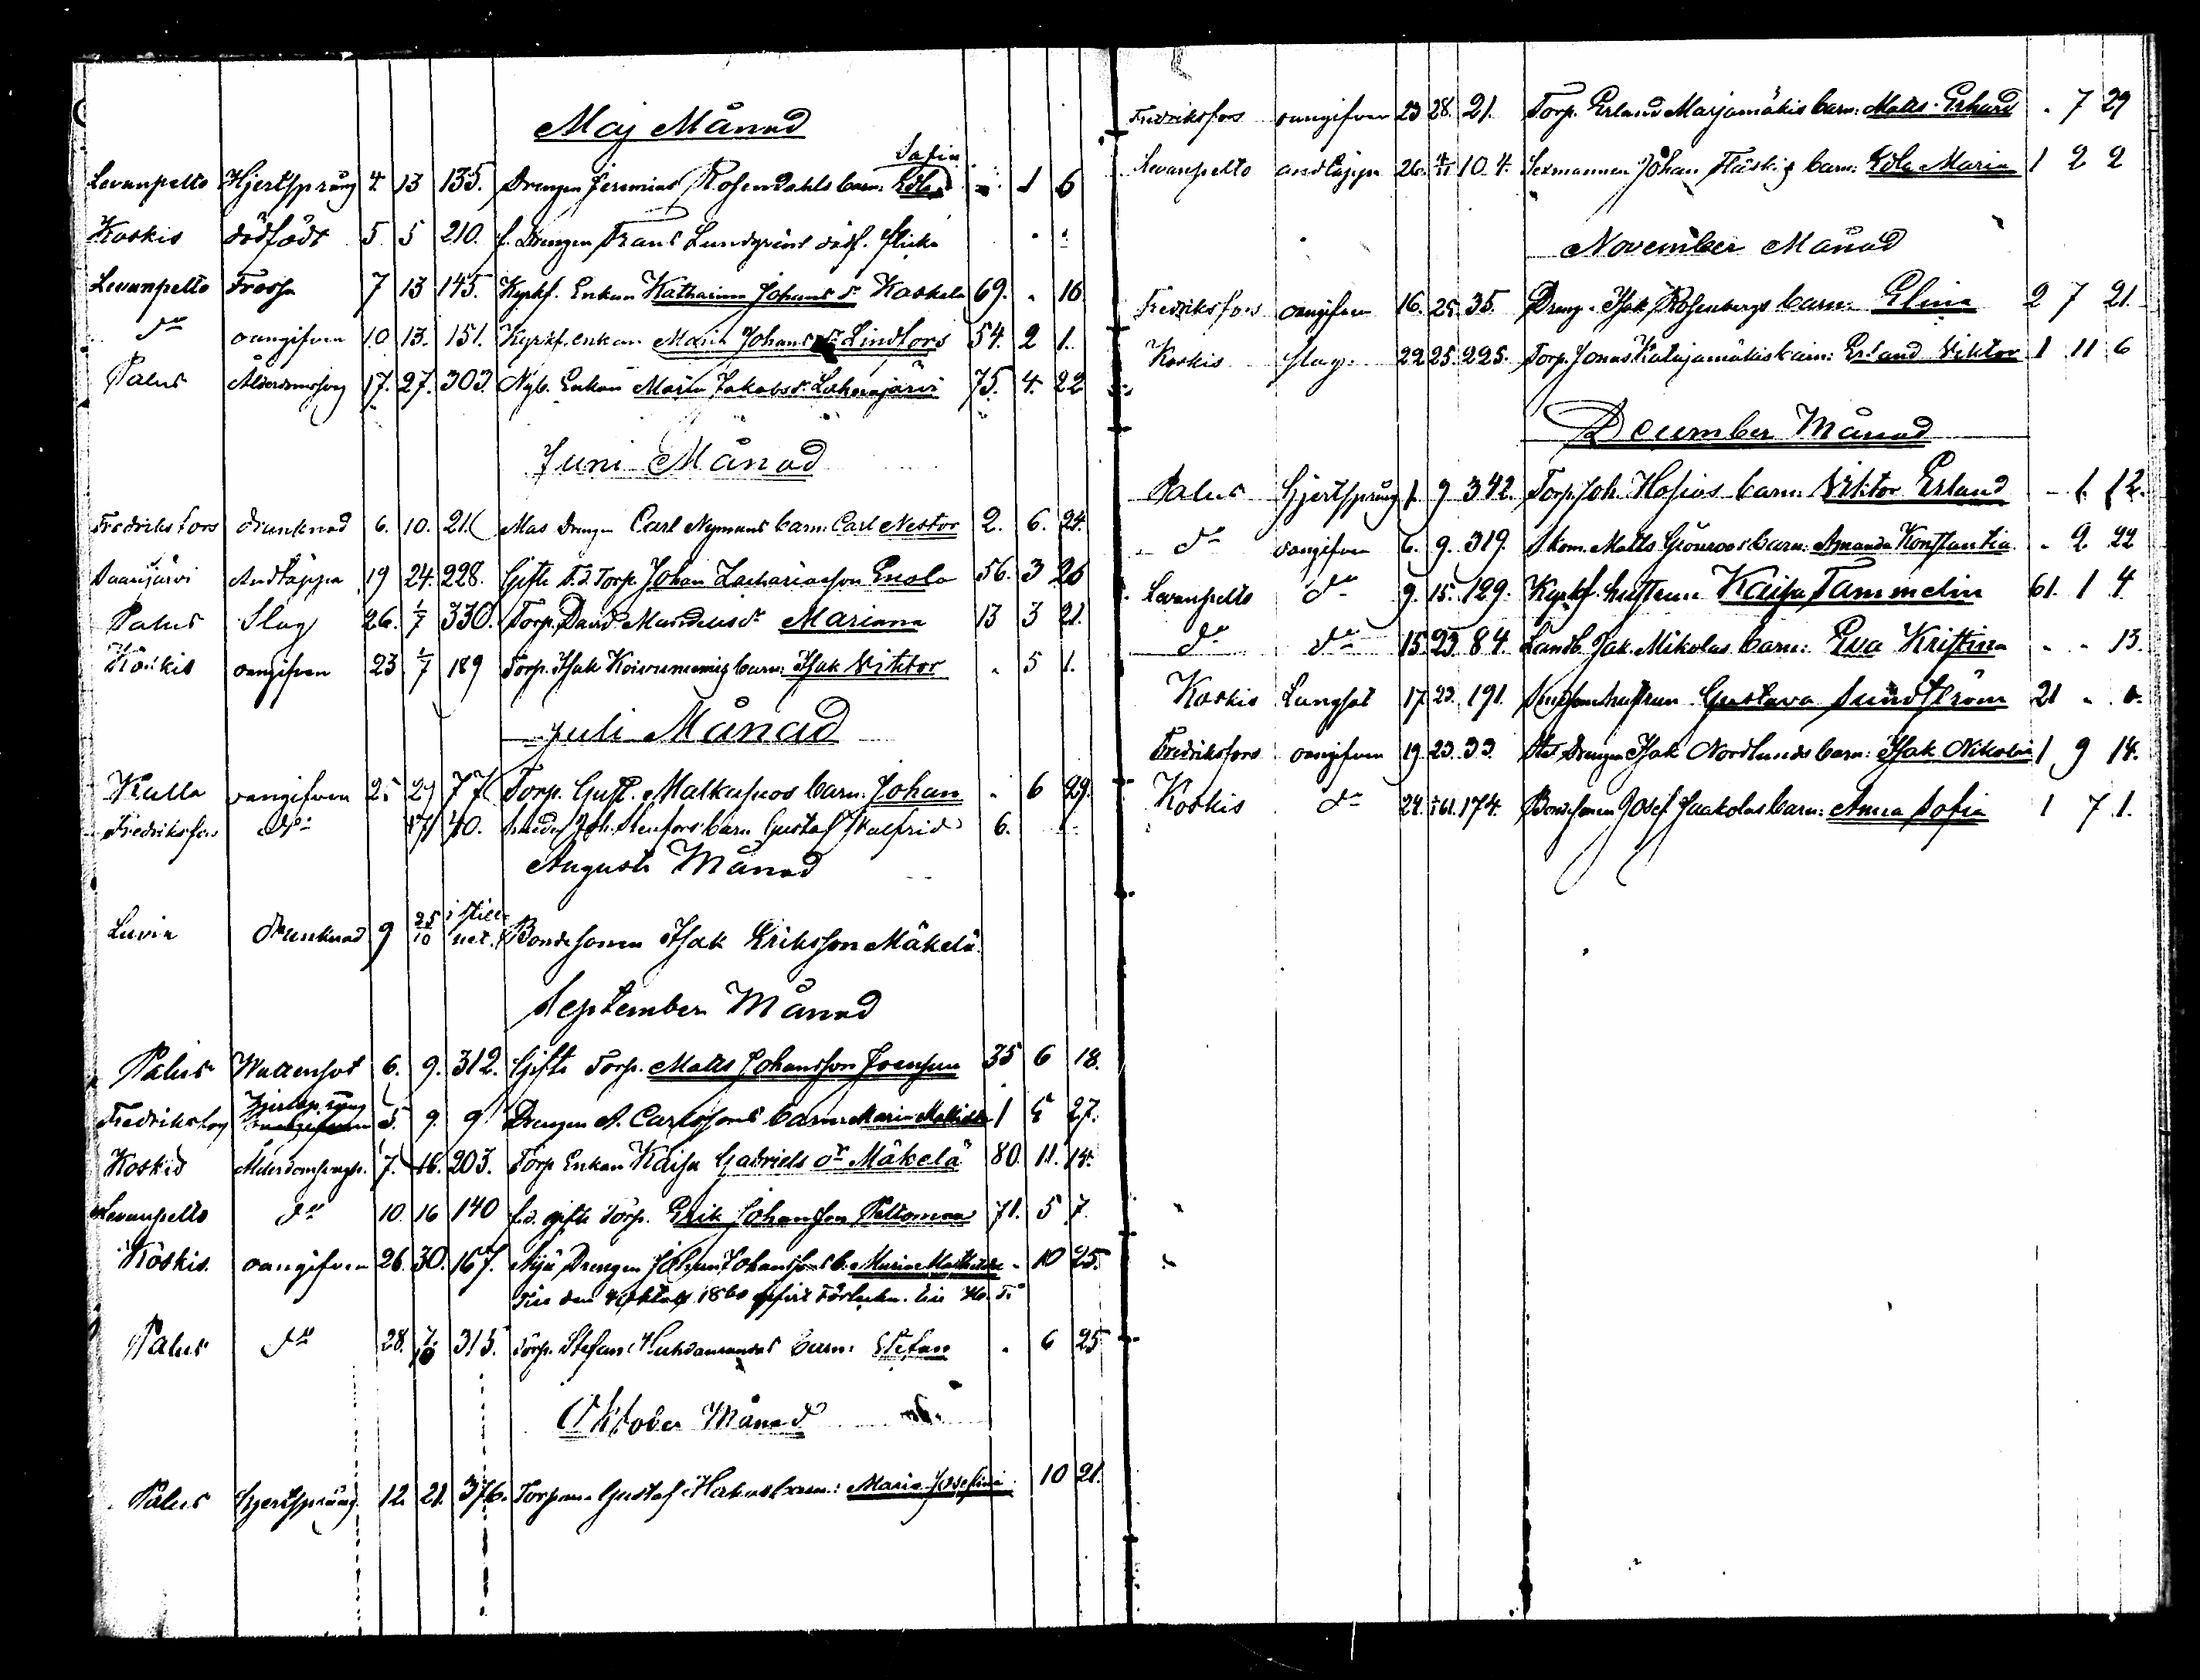 Maj Månad
Sofia
Levanpelto Hjertsprång 4. 13 135. Drengen Jeremias Rosendahls barn: Edla 1 6
Koskis dödfödt 5 5 210. f. Drengen Frans Lundgrens dödf. flicka
Levanpelto Frossa 7 13 145. Kyrkf. Enkan Katharina Johans dr Koskela 69. " 16
do oangifven 10 13. 151. Kyrkf. enkan Maria Johans dr Lindfors 54. 2 1.
Palus Ålderdomsbrg 17. 27. 303. Nyb. Enkan Maria Jakobs dr Lahnajärvi 75. 4. 22
Juni Månad
Fredriksfors drunknad 6. 10. 21. Mas Drengen Carl Nymans barn: Carl Nestor 2. 6. 24.
Saarijärvi Andtäppa 19 24. 228. Gifte f.d. Torp. Johan Zachariasson Enola 56. 3 26
Palus Slag 26. 1/7 330. Torp. David Mandelus dr Mariana 13 3 21.
Koskis oangifven 23 1/7 189 Torp. Isak Koivuniemis barn: Isak Viktor " 5 1.
Juli Månad
Kulla oangifven 25 29 77 Torp. Gust. Malkapuos barn: Johan " 6 29.
Fredriksfors do 17 40. Smeden Joh. Stenfors barn Gustaf Walfrid 6.
Augusti Månad
Luvia drunknad 9 25/10 i stillhet. Bondesonen Isak Eriksson Mäkelä.
September Månad
Palus Wattensot 6. 9. 312. Gifte Torp. Matts Johansson 35 6 18.
Fredriksfors Hjertsprång 5 9. 9 Drengen A. Carlssons barn: Maria Mathilda 1 5 27.
Koskis Ålderdomsbrgh. 7. 16. 203. Torp Enkan Kaisa Gabriels dr Mäkelä 80. 11. 14.
Levanpelto do 10. 16 140 f.d. gifte Torp. Erik Johansson Peltomaa 71. 5 7.
Koskis. oangifven 26. 30. 167. Drengen Johan Johanssons b. Maria Mathilda " 10 25.
Till den 4 Oktob 1860
Palus do 28. 7/10 315. Torp. Stefan Huhdanmaas barn: Stefan " 6 25
Oktober Månad
Palus Hjertsprång. 12. 21. 376. Torparen Gustaf Hakas barn: Maria Josefina. 10 21.
Fredriksfors oangifven 23 28. 21. Torp. Erland Marjamäkis barn: Matts Erhard " 7 29
Levanpelto andtäppa 26. 4/11 104. Sexmannen Johan Fläskis barn: Edla Maria 1 2 2
November Månad
Fredriksfors oangifven 16. 25. 35. Dreng. Isak Rosenbergs barn: Elina 2 7 21.
Koskis slag. 22 25. 225. Torp. Jonas Katajamäkis barn: Erland Viktor 1 11 6
December Månad
Palus Hjertsprång 1. 9. 342. Torp. Joh. Hosios barn: Viktor Erland " 1. 12.
do oangifven 6. 9. 319. Skom. Matts Grönroos barn: Amanda Konstantia " 2 22
Levanpelto do 9. 15. 129. Kyrkf. hustrun Kaisa Tammelin 61. 1 4.
do do 15 23. 84. Landb. Jak. Mikolas barn: Eva Kristina " " 13.
Koskis Lungsot 17. 23. 191. hustrun Gustava Sundström 21 " 6.
Fredriksfors oangifven 19. 23. 33. Drengen Isak Nordlunds barn: Isak Nikolai 1 9 14.
Koskis do 24. 174. Bondesonen Josef Jaakolas barn: Anna Sofia 1 7 1.